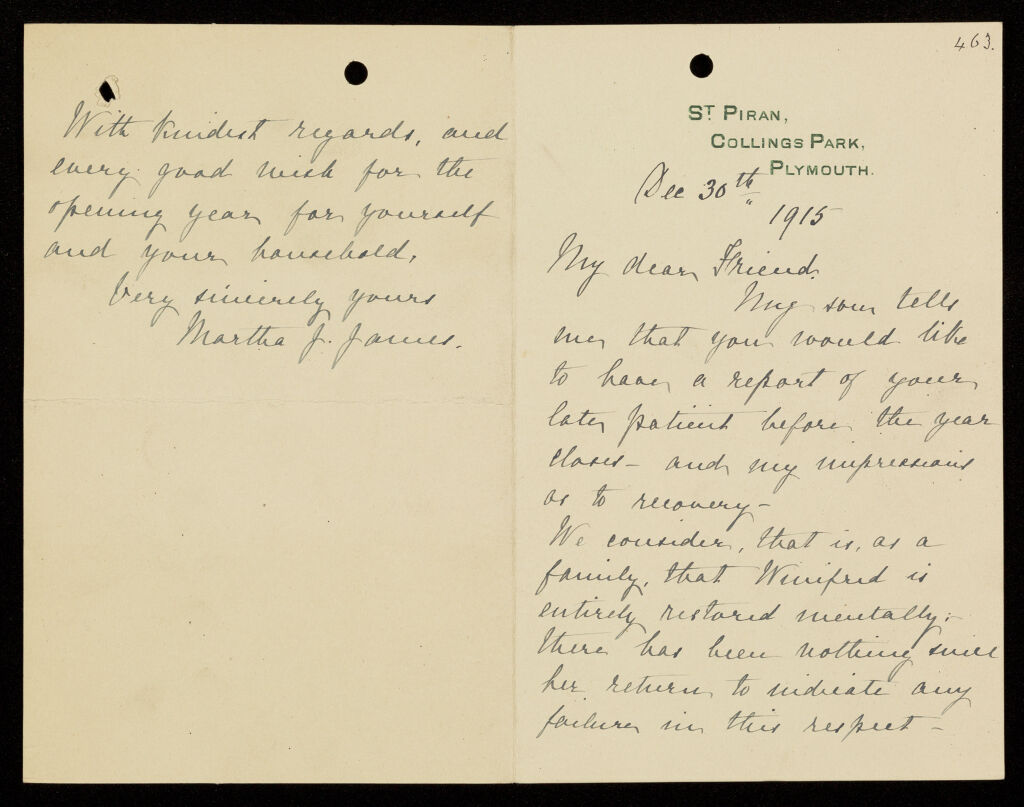 463.
ST PIRAN,
COLLINGS PARK,
PLYMOUTH.
Dec 30th
1915
My dear Friend.
My son tells
me that you would like
to have a report of your
late patient before the year
closes - and my impressions
as to recovery -
We consider, that is, as a
family, that Winifred is
entirely restored mentally;
there has been nothing since
her return to indicate any
failure in this respect -
With kindest regards, and
every good wish for the
opening year for yourself
and your household,
Very sincerely yours
Martha J. James.